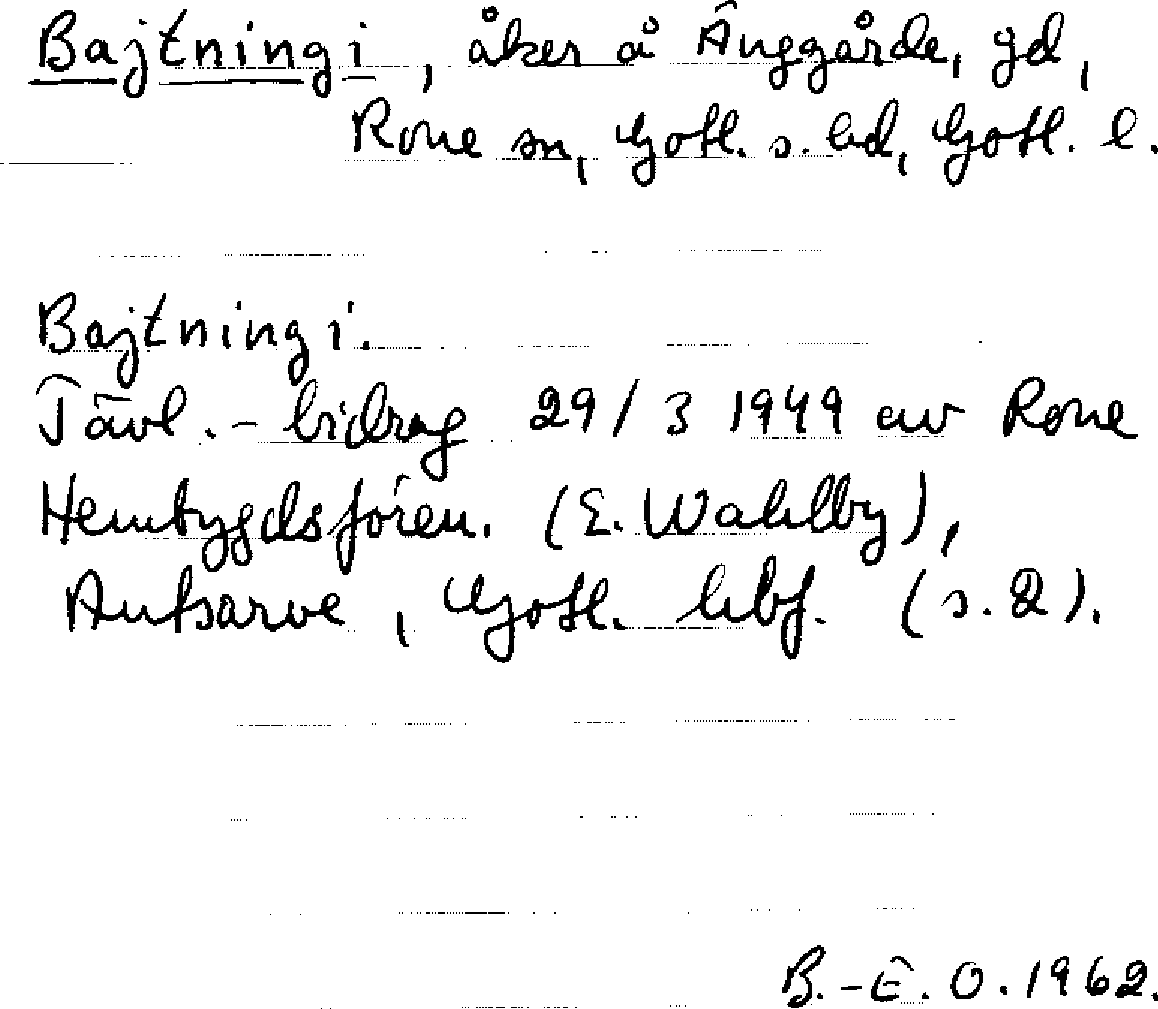 Bajtningi, åker å Änggårde, gd,
Rone sn, Gotl. s. hd, Gotl. l.
Bajtningi.
Tävl.-bidrag 29/3 1949 av Rone
Hembygdsfören. (E. Wahlby),
Autsarve, Gotl. hbf. (s. 2).
B.-E. O. 1962.